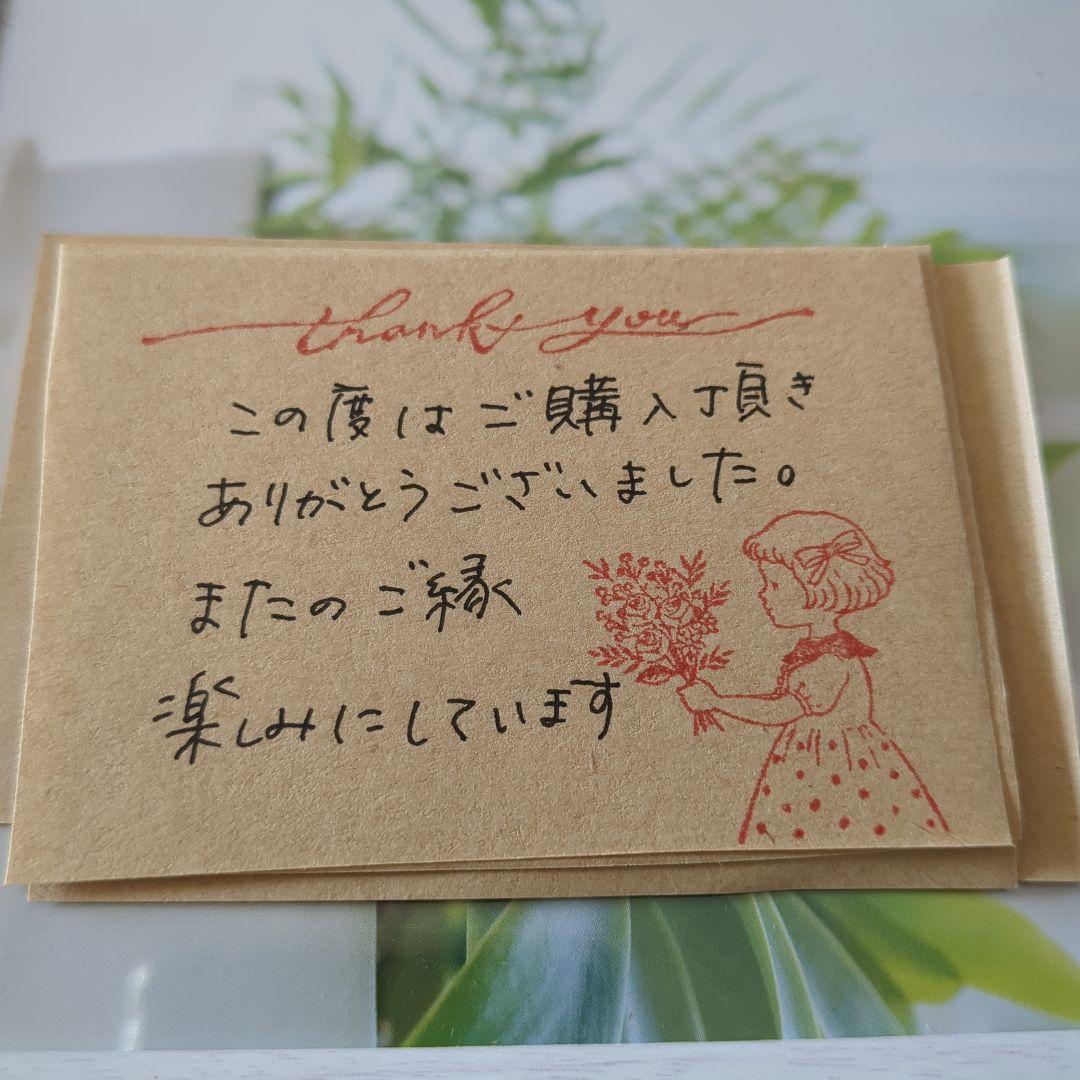 thank you
この度はご購入頂き
ありがとうございました。
またのご縁
楽しみにしています